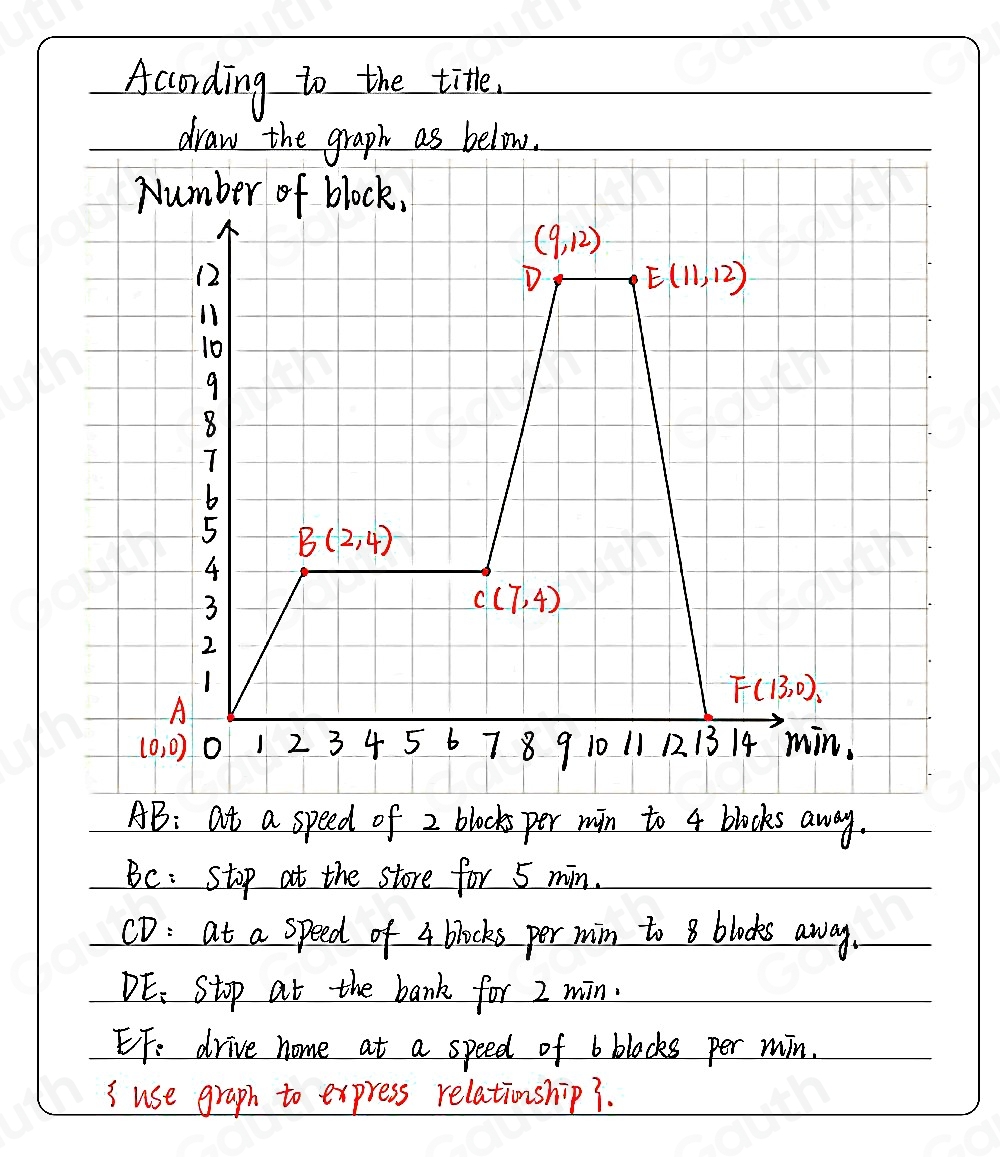 According to the title,
draw the graph as below.
Number of block,
(9,12)
12 D E(11,12)
11
10
9
8
7
6
5
B(2,4)
4
3 C(7,4)
2
1
A F(13,0),
(0,0) 0 1 2 3 4 5 6 7 8 9 10 11 12 13 14 min.
AB: at a speed of 2 blocks per min to 4 blocks away.
BC: stop at the store for 5 min.
CD: at a speed of 4 blocks per min to 8 blocks away.
DE: stop at the bank for 2 min.
EF: drive home at a speed of 6 blocks per min.
{use graph to express relationship}.
Gauth